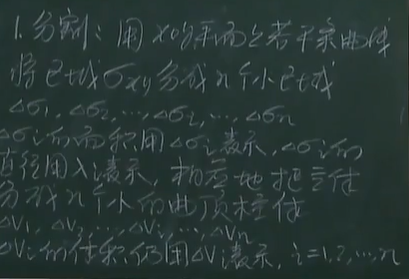 1.分割：用xoy平面上若干条曲线
将区域σxy分成n个小区域
△σ1,△σ2,…,△σi,…,△σn
△σi的面积用△σi表示,△σi的
直径用λi表示,相应地把立体
分成n个小的曲顶柱体
△V1,△V2,…,△Vi,…,△Vn
△Vi的体积仍用△Vi表示,i=1,2,…,n